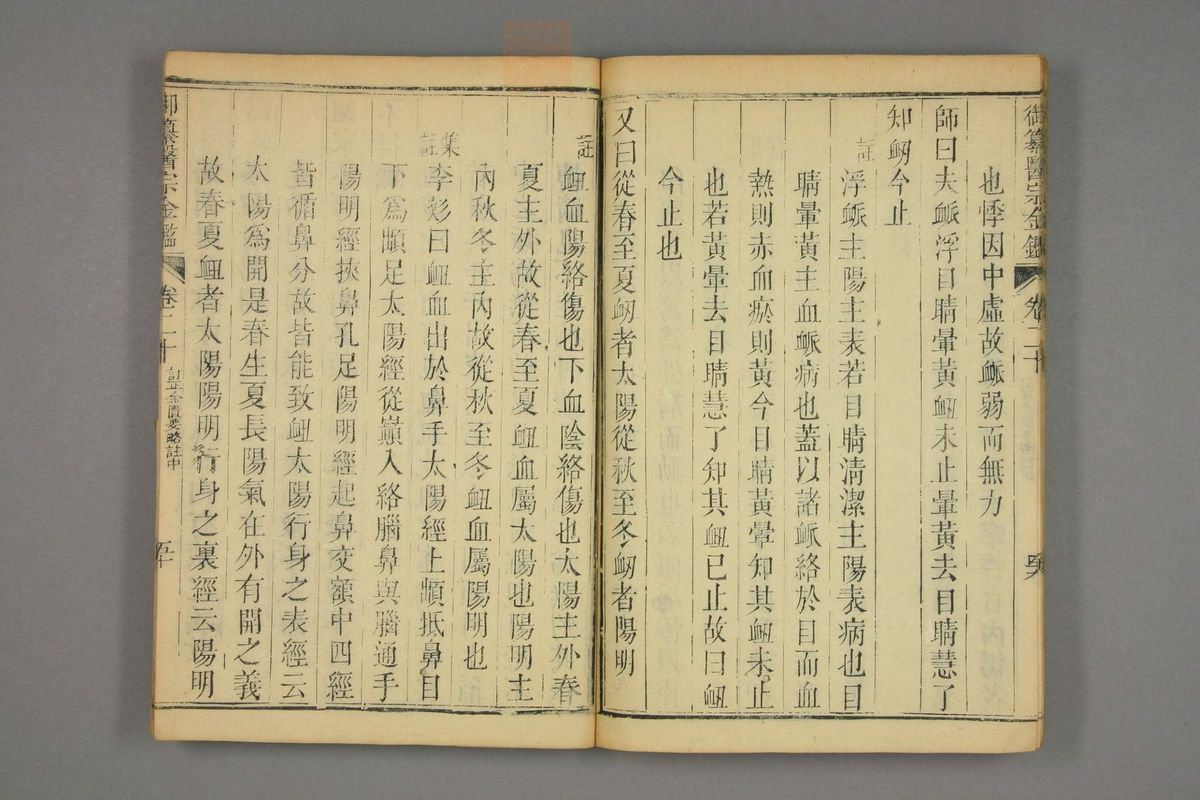 御纂醫宗金鑑 卷二十
也悸因中虛故衇弱而無力
師曰夫衇浮目睛暈黃衄未止暈黃去目睛慧了
知衂今止
註 浮衇主陽主表若目睛清潔主陽表病也目
睛暈黃主血衇病也蓋以諸衇絡於目而血
熱則赤血瘀則黃今目睛黃暈知其衄未止
也若黃暈去目睛慧了知其衄已止故曰衄
今止也
又曰從春至夏衂者太陽從秋至冬衂者陽明
註 衄血陽絡傷也下血陰絡傷也太陽主外春
夏主外故從春至夏衄血屬太陽也陽明主
內秋冬主內故從秋至冬衄血屬陽明也
集註 李彣曰衄血出於鼻手太陽經上䪼抵鼻目
下為䪼足太陽經從巔入絡腦鼻與腦通手
陽明經挾鼻孔足陽明經起鼻交頞中四經
皆循鼻分故皆能致衄太陽行身之表經云
太陽為開是春生夏長陽氣在外有開之義
故春夏衄者太陽陽明行身之裏經云陽明
御纂醫宗金鑑 卷二十 訂正金匱要略註中